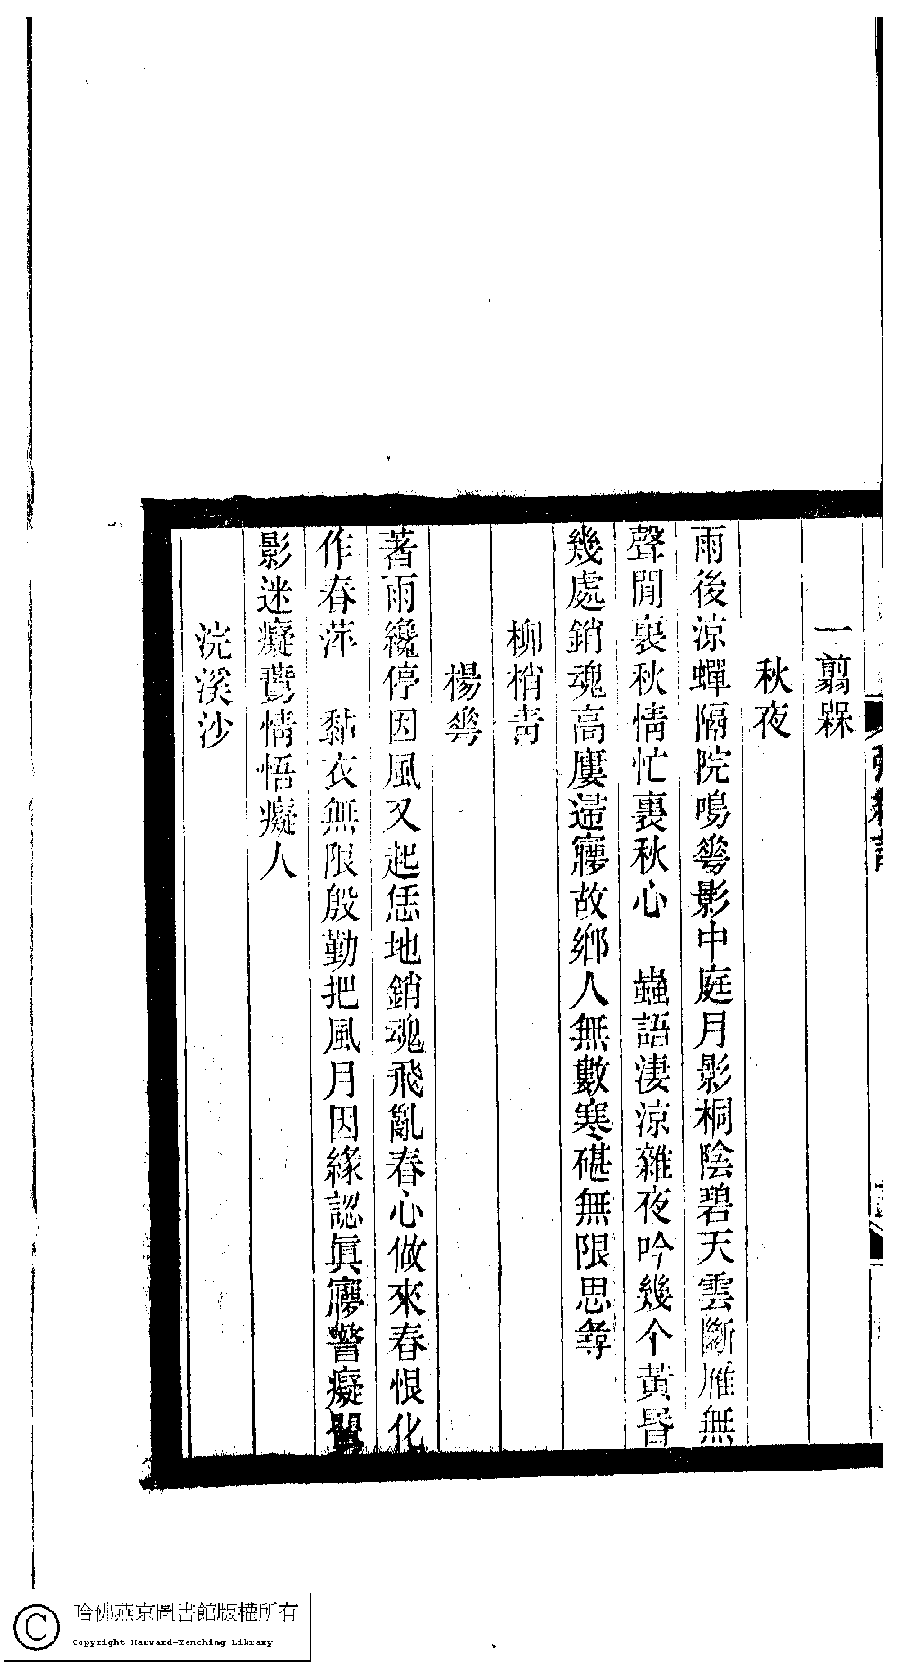 一翦槑
秋夜
雨後涼蟬隔院鳴㠭影中庭月影桐陰碧天雲斷雁無
聲閒裏秋情忙裏秋心　蟲語淒涼雜夜吟幾个黃昬
幾處銷魂高廔遠㝱故鄉人無數寒碪無限思尋
柳梢青
楊蕐
著雨纔停因風又起恁地銷魂飛亂春心做來春恨化
作春萍　黏衣無限殷勤把風月因緣認眞㝱警癡
影迷癡鶯情悟癡人
浣溪沙
哈佛燕京圖書館版權所有
Copyright Harvard-Yenching Library